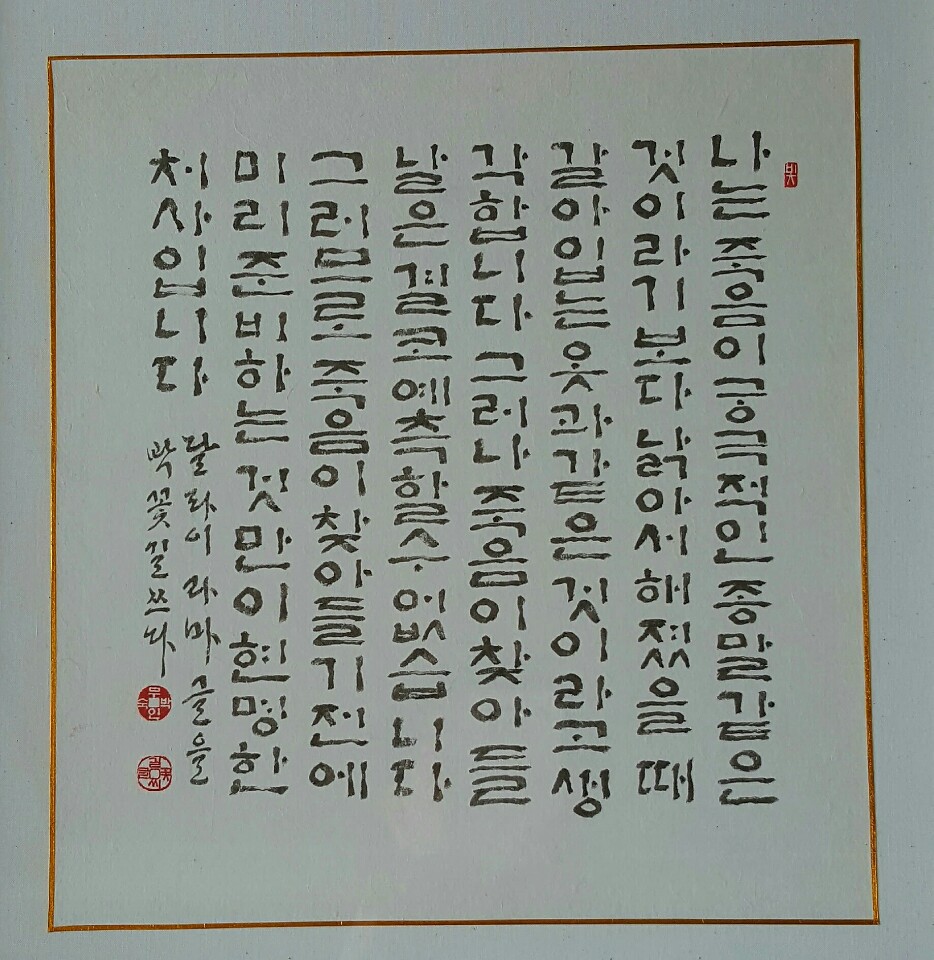 나는 죽음이 궁극적인 종말 같은
것이라기보다 낡아서 해졌을 때
갈아입는 옷과 같은 것이라고 생
각합니다 그러나 죽음이 찾아 들
날은 결코 예측할 수 없습니다
그러므로 죽음이 찾아들기 전에
미리 준비하는 것만이 현명한
처사입니다
달라이 라마 글을
박꽃길 쓰다
빛